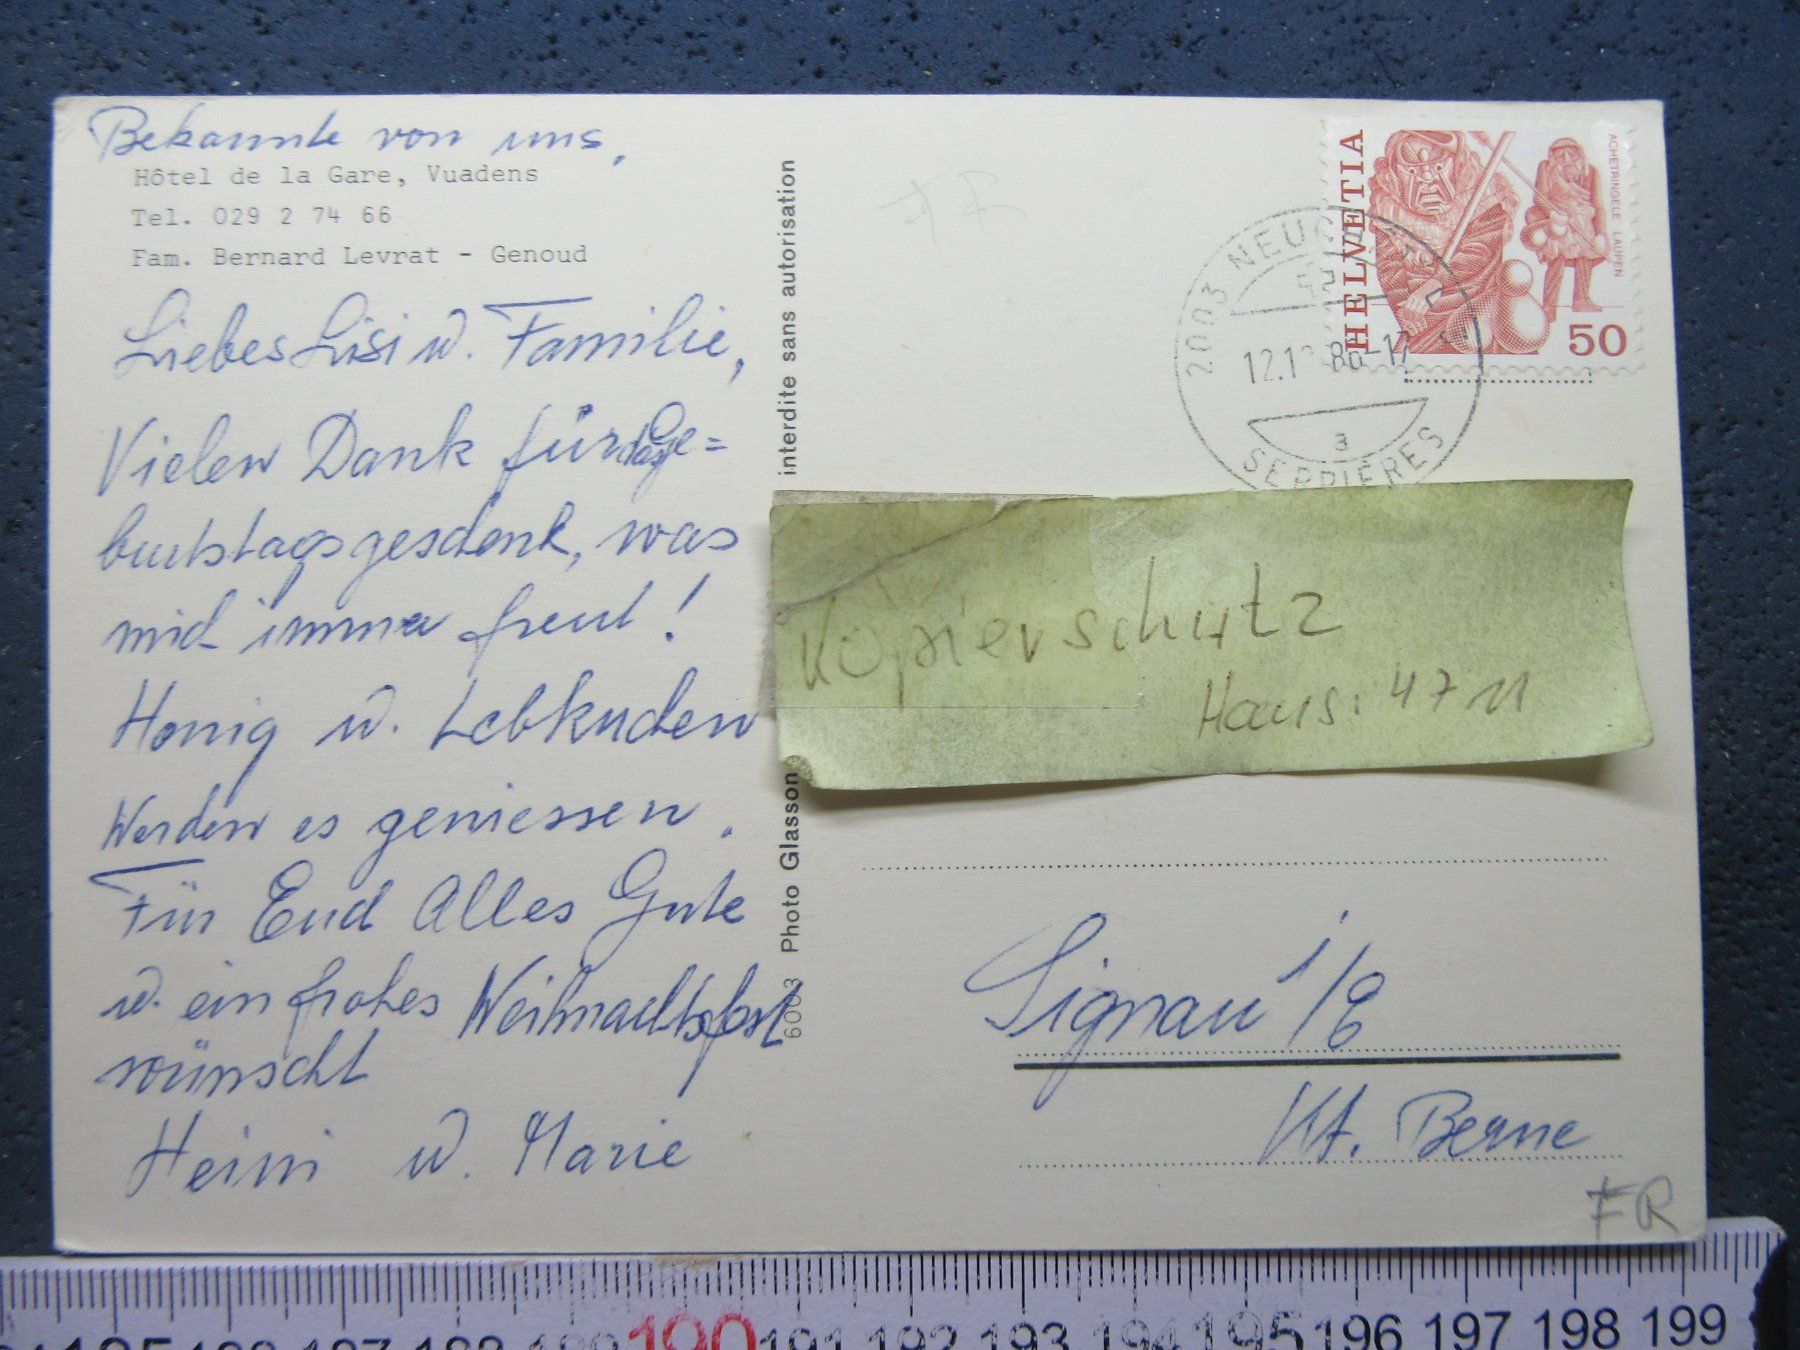 Bekannte von uns,
Hôtel de la Gare, Vuadens
Tel. 029 2 74 66
Fam. Bernard Levrat - Genoud
Liebes Lisi u. Familie,
Vielen Dank für das Ge=
burtstagsgeschenk, was
mich immer freut!
Honig u. Lebkuchen
Werden es geniessen.
Für Euch Alles Gute
u. ein frohes Weihnachtsfest
wünscht
Heini u. Marie
interdite sans autorisation
Photo Glasson
6003
HELVETIA
ACHETRINGELE LAUPEN
50
2003 NEUCHÂTEL
12.12.86-17
a
SERRIÈRES
Kopierschutz
Haus: 4711
Signau i/E
Kt. Berne
FR
190 191 192 193 194 195 196 197 198 199